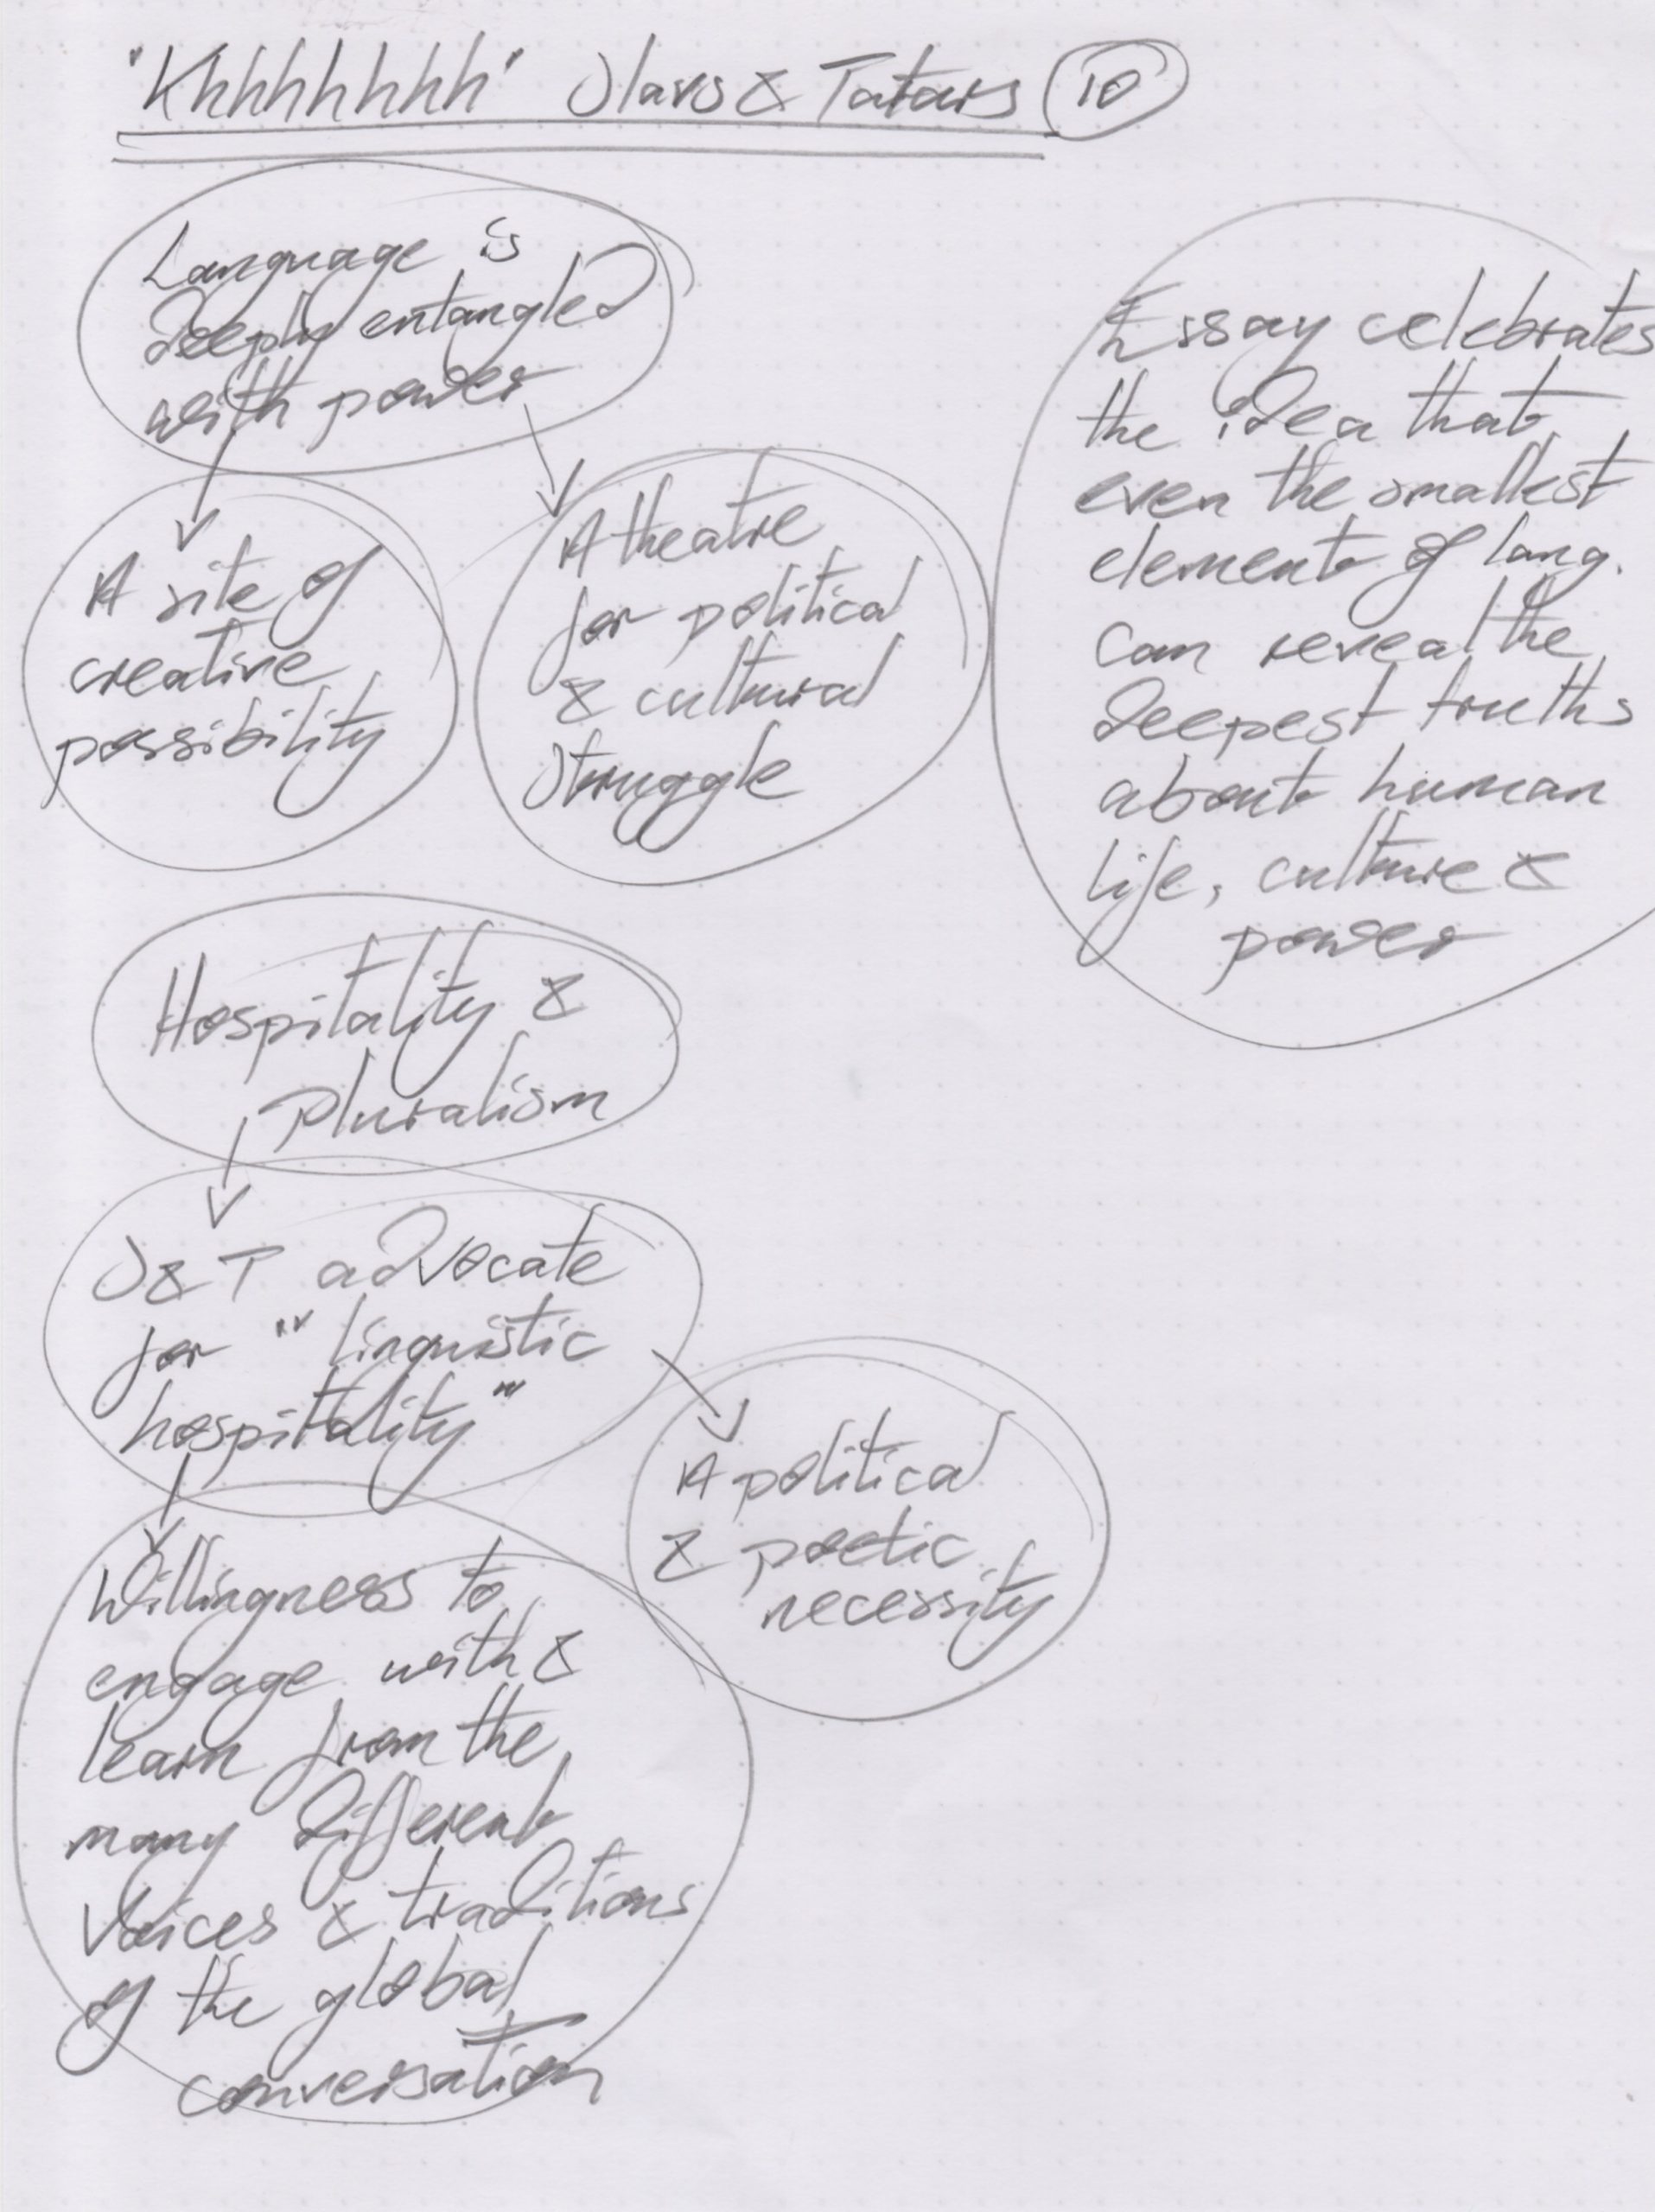 "Khhhhhhh" Slavs & Tatars 10
Language is
deeply entangled
with power
A site of
creative
possibility
A theatre
for political
& cultural
struggle
Essay celebrates
the idea that
even the smallest
element of lang.
can reveal the
deepest truths
about human
life, culture &
power
Hospitality &
Pluralism
S & T advocate
for "linguistic
hospitality"
A political
& poetic
necessity
Willingness to
engage with &
learn from the
many different
voices & traditions
of the global
conversation